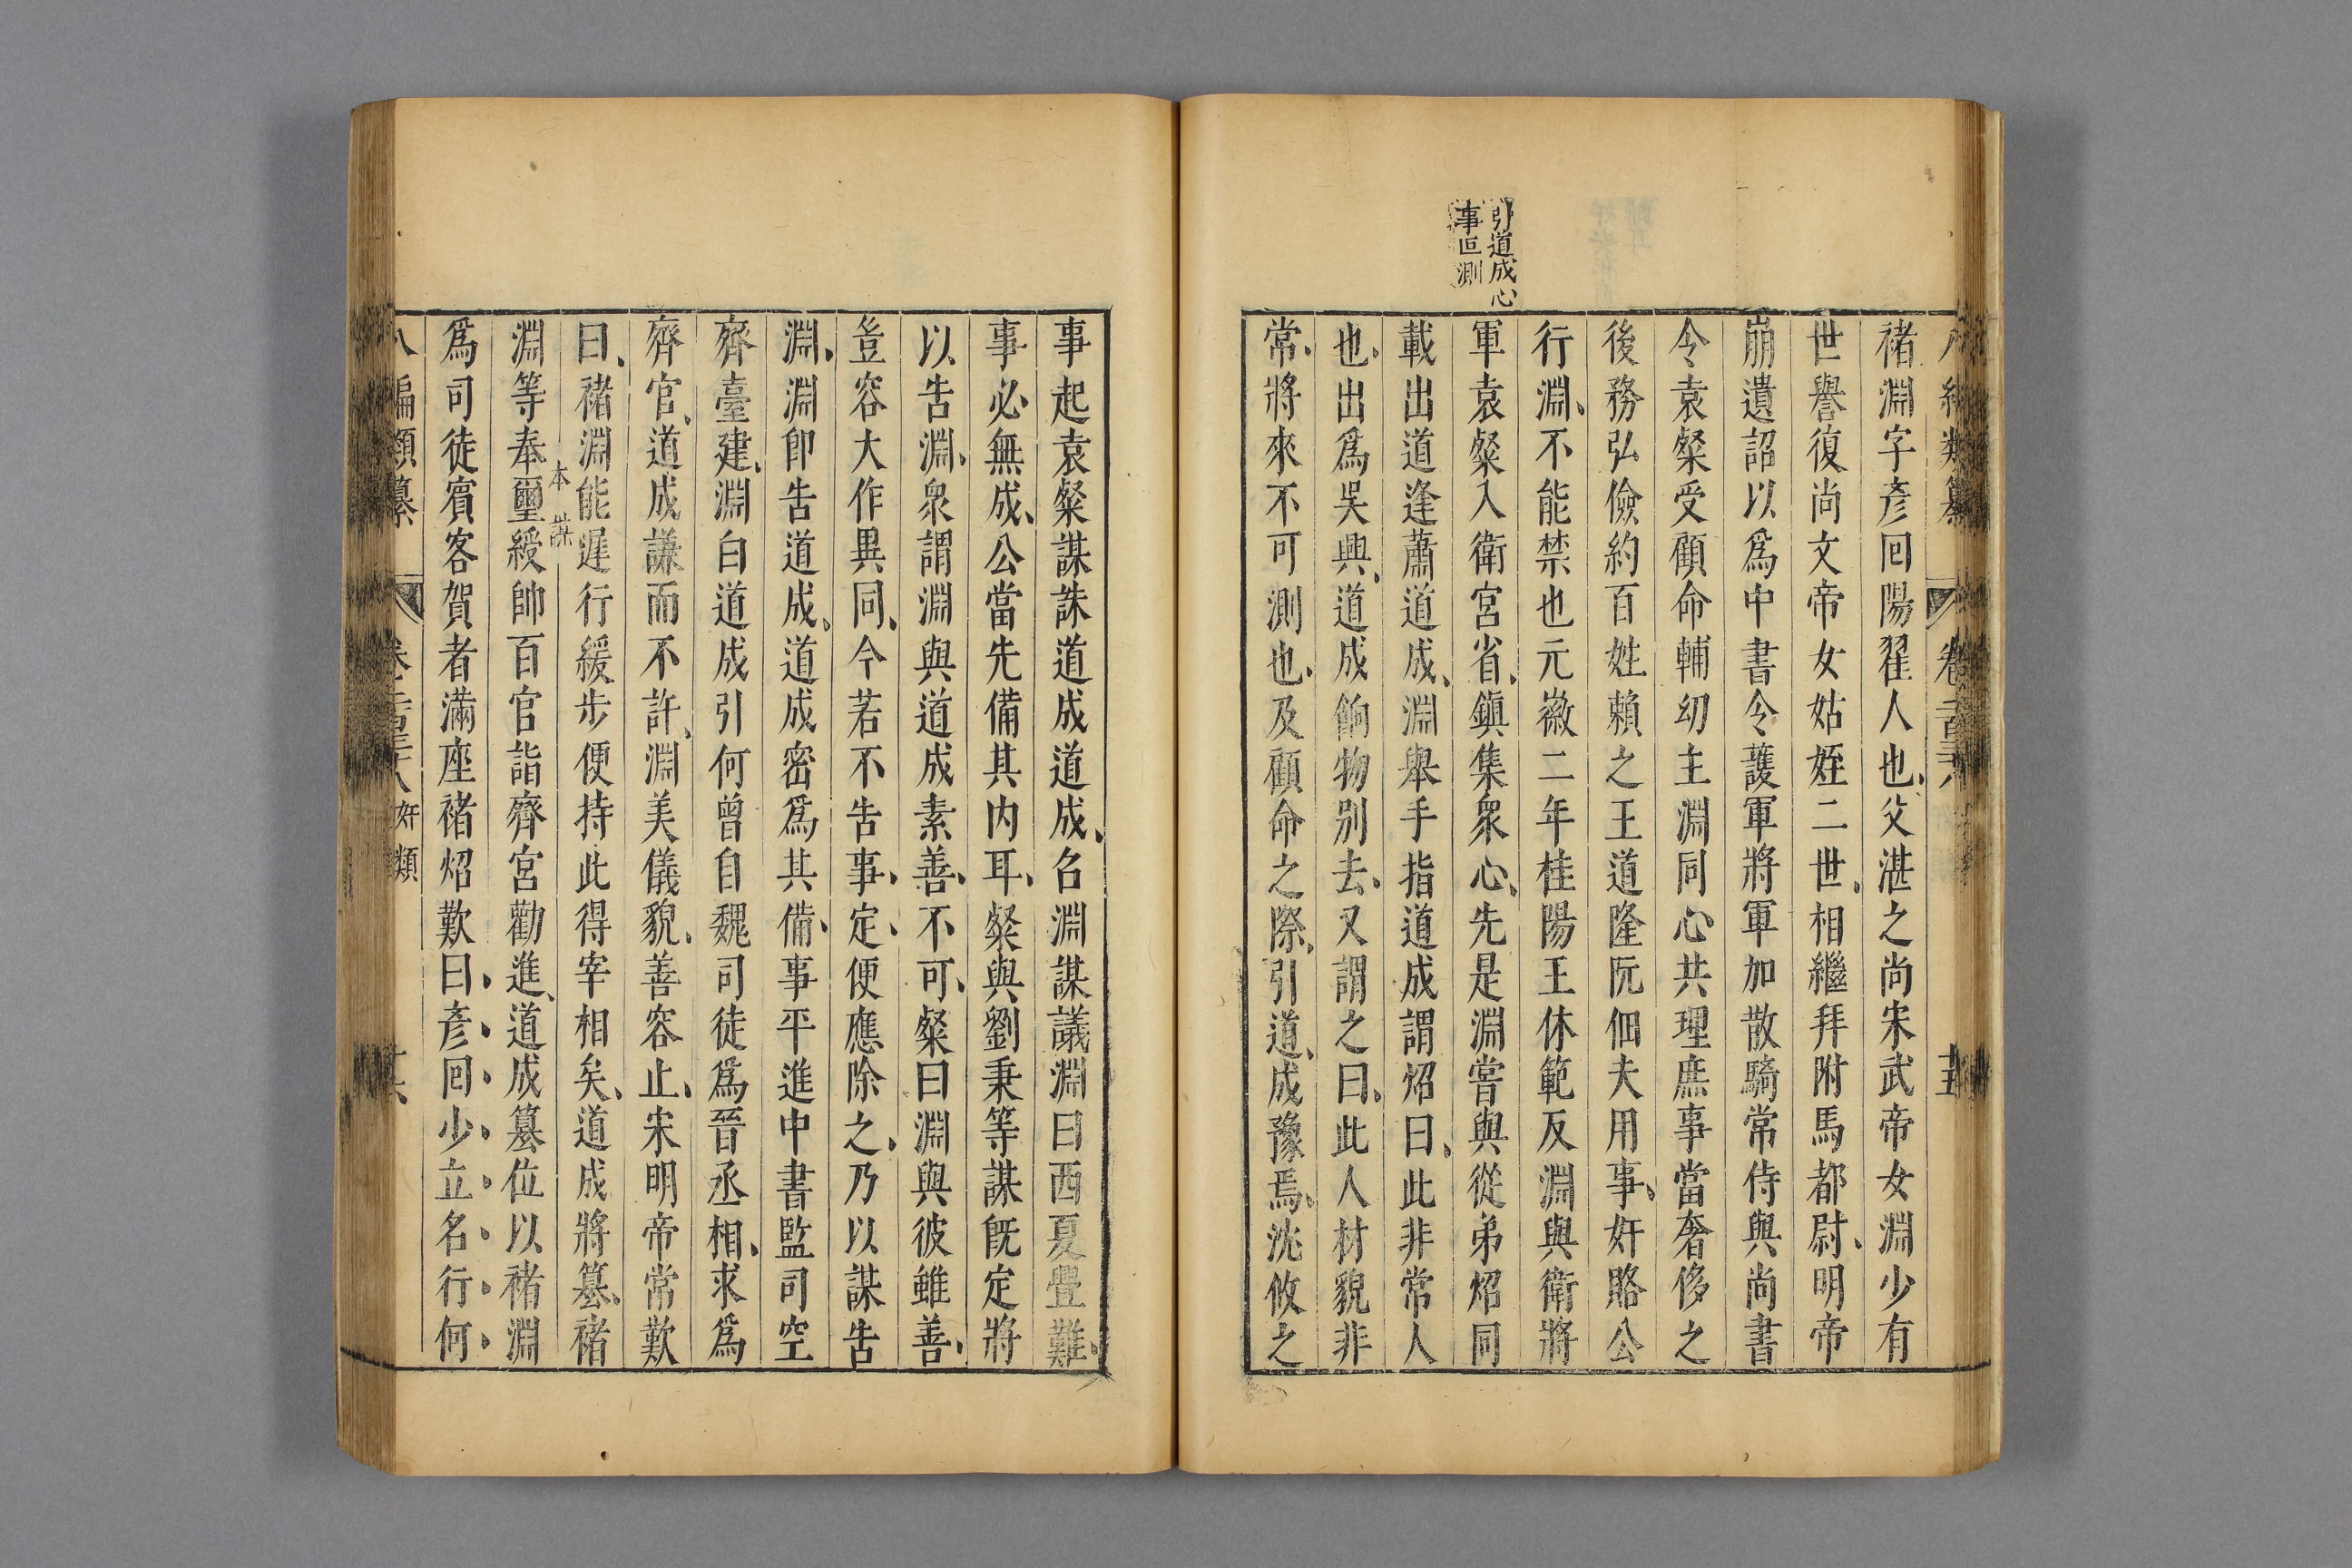 褚淵字彥回陽翟人也父湛之尚宋武帝女淵少有
世譽復尚文帝女姑姪二世相繼拜附馬都尉明帝
崩遺詔以爲中書令護軍將軍加散騎常侍與尚書
令袁粲受顧命輔幼主淵同心共理庶事當奢侈之
後務弘儉約百姓賴之王道隆阮佃夫用事奸賂公
行淵不能禁也元徽二年桂陽王休範反淵與衛將
軍袁粲入衛宮省鎭集衆心先是淵嘗與從弟炤同
載出道逢蕭道成淵舉手指道成謂炤曰此非常人
也出爲吳興道成餉物別去又謂之曰此人材貌非
常將來不可測也及顧命之際引道成豫焉沈攸之
引道成心
事叵測
事起袁粲謀誅道成道成名淵謀議淵曰西夏釁難
事必無成公當先備其内耳粲與劉秉等謀旣定將
以告淵衆謂淵與道成素善不可粲曰淵與彼雖善
豈容大作異同今若不告事定便應除之乃以謀告
淵淵卽告道成道成密爲其備事平進中書監司空
齊臺建淵白道成引何曾自魏司徒爲晉丞相求爲
齊官道成謙而不許淵美儀貌善容止宋明帝常歎
曰褚淵能遲行緩步便持此得宰相矣道成將簒褚
淵等奉璽綬帥百官詣齊宮勸進道成簒位以褚淵
爲司徒賓客賀者滿座褚炤歎曰彥回少立名行何
八編類纂 卷二百三十八 奸類 十六